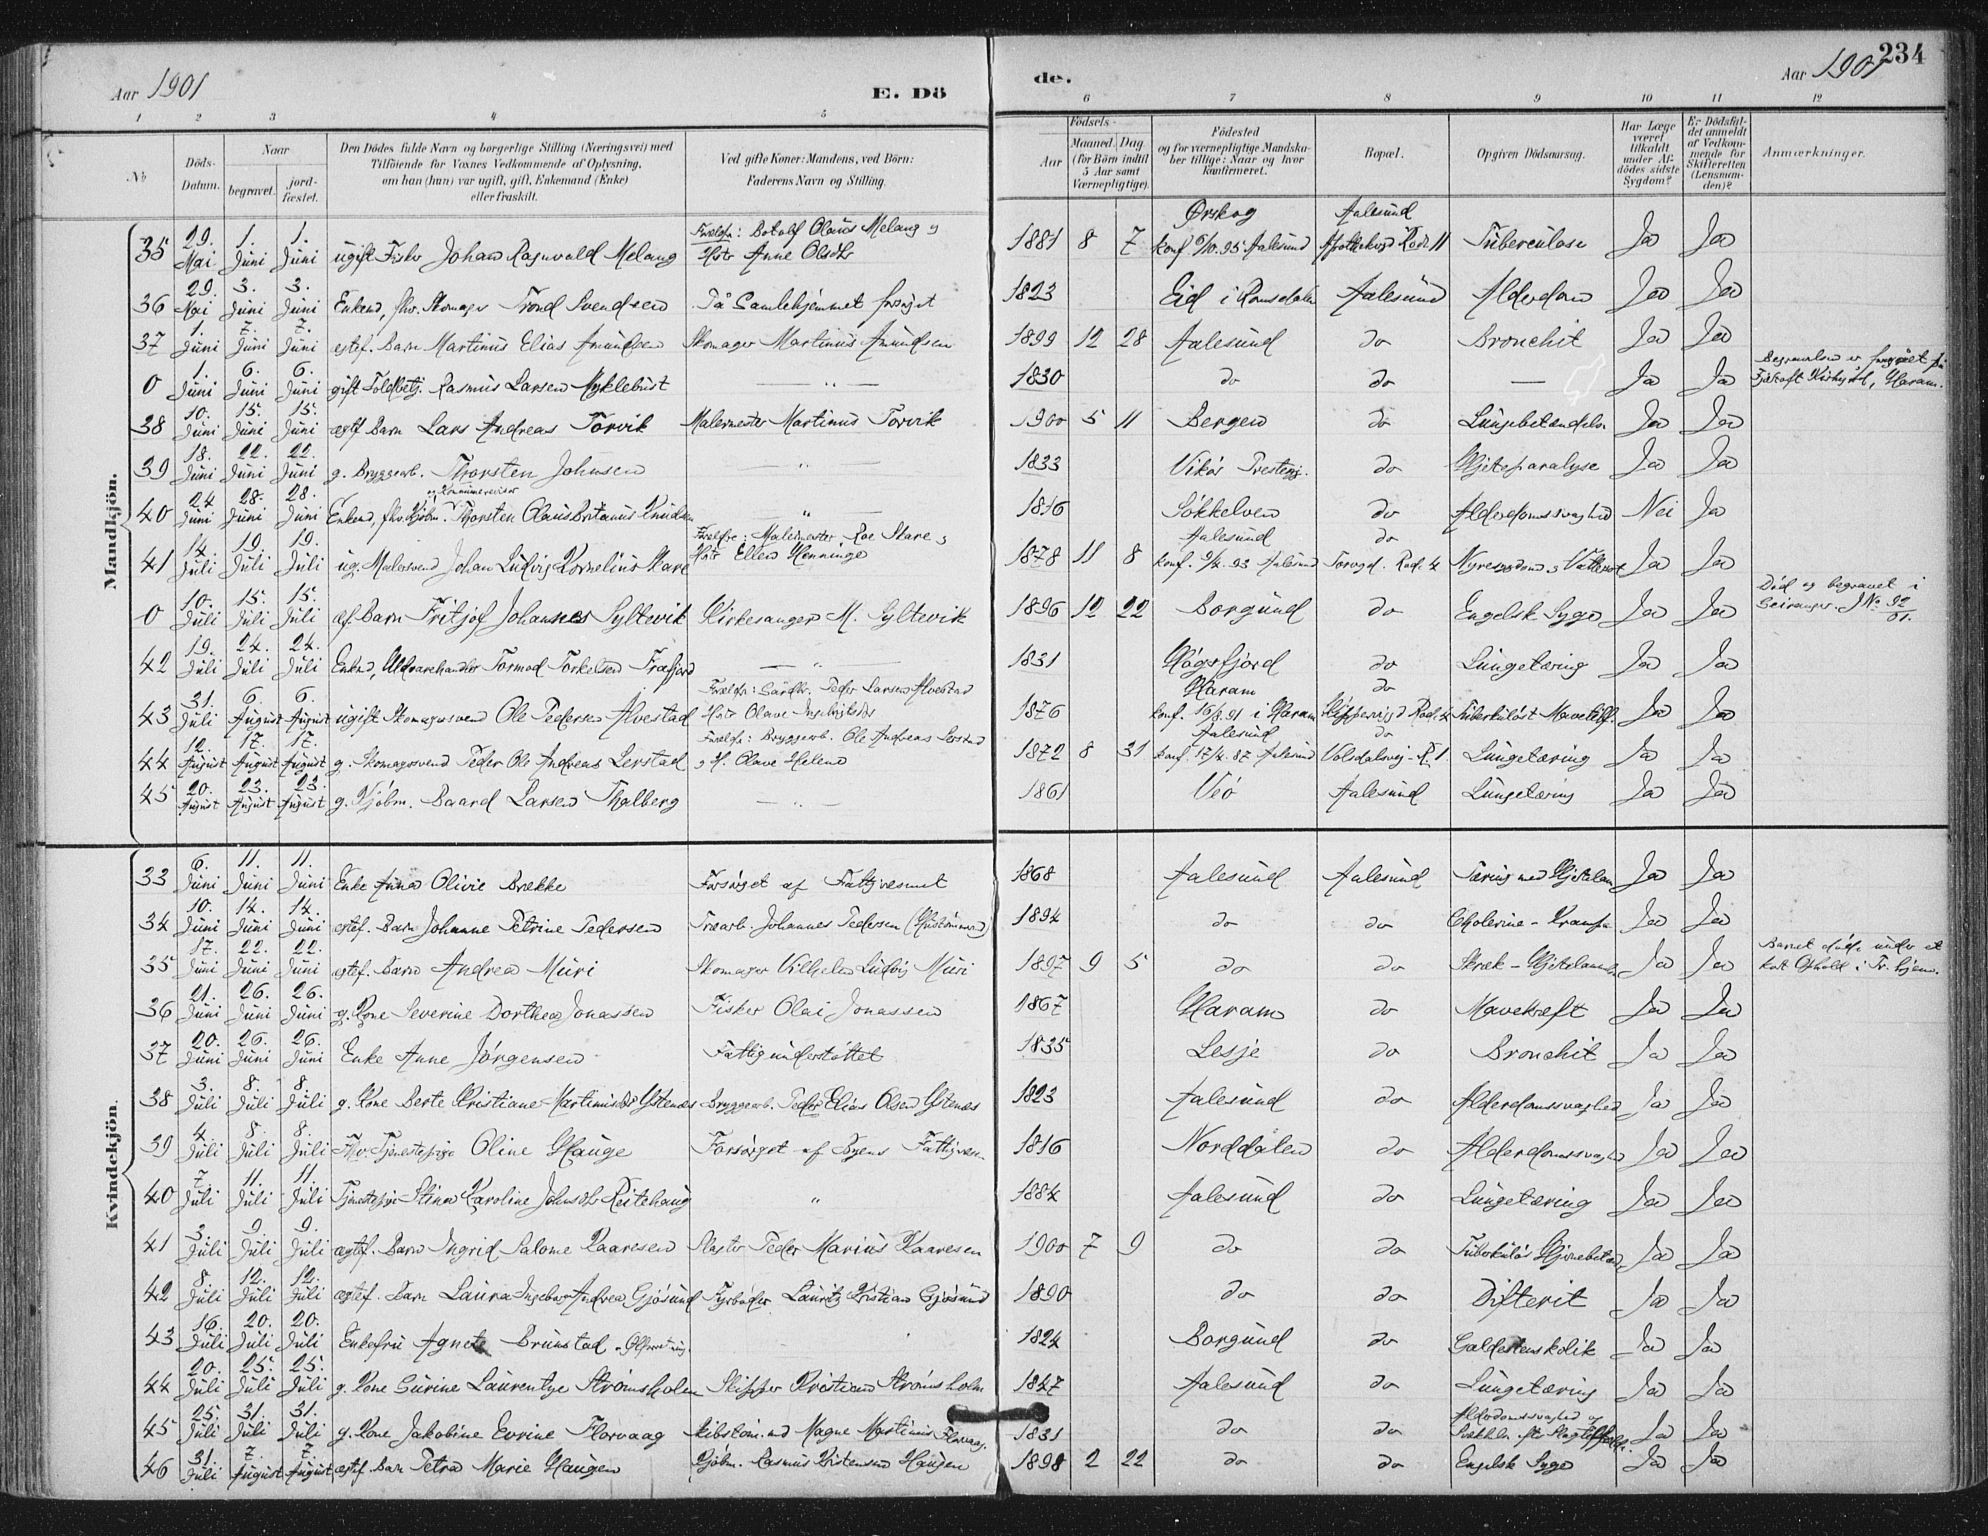 Aar 1901
E. Dö
de.
Aar 1901
234
1 2 3 4 5 6 7 8 9 10 11 12
No
Döds-Datum.
Naar
begravet.
jord-fæstet.
Den Dödes fulde Navn og borgerlige Stilling (Næringsvei) med
Tilföiende for Voxnes Vedkommende af Oplysning,
om han (hun) var ugift, gift, Enkemand (Enke)
eller fraskilt.
Ved gifte Koner: Mandens, ved Börn:
Faderens Navn og Stilling.
Födsels-
Aar
Maaned. Dag.
(for Börn indtil
5 Aar samt
Værnepligtige).
Födested
og for værnepligtige Mandska-
ber tillige: Naar og hvor
konfirmeret.
Bopæl.
Opgiven Dödsaarsag.
Har Læge
været
tilkaldt
under Af-
dödes sidste
Sygdom?
Er Dödsfal-
det anmeldt
af Vedkom-
mende for
Skifteretten
(Lensman-
den)?
Anmærkninger.
Mandkjön.
35 29. Mai 1. Juni 1. Juni ugift Fisker Johan Ragnvald Melang Forældre: Botolf Olaus Melang og Hstr Anne Olsdtr 1881 8 7 Ørskog konf. 6/10.95 Aalesund Aalesund Apothekergd Rode 11 Tuberculose Ja Ja
36 29. Mai 3. Juni 3. Juni Enkem., fhv. Skomager Trond Svendsen På Gamlehjemmet forsørget 1823 Eid i Romsdalen Aalesund Alderdom Ja Ja
37 1. Juni 7. Juni 7. Juni ægtef. Barn Martinus Elias Amundsen Skomager Martinus Amundsen 1899 12 28 Aalesund do Bronchit Ja Ja
0 1. Juni 6. Juni 6. Juni gift Toldbetj. Rasmus Larsen Myklebust — " — 1830 do do — Ja Ja Begravelsen er foregået på Fjørtoft Kirkegård, Haram.
38 10. Juni 15. Juni 15. Juni ægtf Barn Lars Andreas Torvik Malermester Martinus Torvik 1900 5 11 Bergen do Lungebetændelse Ja Ja
39 18. Juni 22. Juni 22. Juni g. Bryggearb. Thorsten Johnsen — " — 1833 Vikør Prestegj. do Hjerteparalyse Ja Ja
40 24 Juni 28. Juni 28. Juni Enkem., fhv. Kjøbm. og Kommunerevisor Thorsten Olaus Britanus Knudsen — " — 1816 Søkkelven do Alderdomssvaghed Nei Ja
41 14. Juli 19. Juli 19. Juli ug. Malersvend Johan Ludvig Kornelius Skare Forældre: Malermester Roe Skare og Hstr Ellen Henninge 1878 11 8 Aalesund konf. 9/4.93 Aalesund do Torvgd. Rod. 4 Nyresygdom og Vattersot Ja Ja
0 10. Juli 15. Juli 15. Juli æf. Barn Fritjof Johannes Syltevik Kirkesanger M. Syltevik 1896 12 22 Borgund do Engelsk Syge Ja Ja Død og begravet i Geiranger. J No 92/01.
42 19. Juli 24. Juli 24. Juli Enkem., Uldvarehandler Tormod Torkelsen Fræfjord — " — 1831 Høgsfjord do Lungetæring Ja Ja
43 31. Juli 6. August 6. August ugift Skomagersvend Ole Pedersen Alvestad Forældre: Gårdbr. Peder Larsen Alvestad Hstr Olave Ingebrigtsdtr 1876 Haram konf. 16/8.91 i Haram do Skippergd Rode 4 Tuberkuløst Ja Ja
44 12. August 17. August 17. August g. Skomagersvend Peder Ole Andreas Lerstad Forældre: Bryggearb. Ole Andreas Lerstad og H. Olave Helene 1872 8 31 Aalesund konf. 17/4.87 Aalesund do Volsdalsvej - R. 1. Lungetæring Ja Ja
45 20. August 23. August 23. August g. Kjøbm. Baard Larsen Thalberg — " — 1861 Veø Aalesund Lungetæring Ja Ja
Kvindekjön.
33 6. Juni 11. Juni 11. Juni Enke Anna Olivie Brække Forsørget af Fattigvæsenet 1868 Aalesund Aalesund Tæring med Hjertelam. Ja Ja
34 10. Juni 14. Juni 14. Juni ægtef. Barn Johanne Petrine Pedersen Træarb. Johannes Pedersen (Hustømmerm.) 1894 do do Cholerine - Krampe Ja Ja
35 17. Juni 22. Juni 22. Juni ægtef. Barn Andrea Muri Skomager Vilhelm Ludvig Muri 1897 9 5 do do Skræk - Hjertelam. Ja Ja Barnet døde under et kort Ophold i Tr. hjem.
36 21. Juni 26. Juni 26. Juni g. Kone Severine Dorthea Jonassen Fisker Olai Jonassen 1867 Haram do Mavekræft Ja Ja
37 20. Juni 26. Juni 26. Juni Enke Anne Jørgensen Fattigunderstøttet 1835 Lesje do Bronchit Ja Ja
38 3. Juli 8. Juli 8. Juli g. Kone Berte Kristiane Martinusdtr Ystenæs Bryggearb. Peder Elias Olsen Ystenæs 1823 Aalesund do Alderdomssvaghed Ja Ja
39 4. Juli 8. Juli 8. Juli Fhv. Tjenestepige Oline Hauge Forsørget af Byens Fattigvæsen 1816 Norddalen do Alderdomssvaghed Ja Ja
40 7. Juli 11. Juli 11. Juli Tjenestepige Stina Karoline Johnsdtr Reitehaug " 1884 Aalesund do Lungetæring Ja Ja
41 3. Juli 9. Juli 9. Juli ægtef. Barn Ingrid Salome Kaaresen Slagter Peder Marius Kaaresen 1900 7 9 do do Tuberkuløs Hjernebetænd. Ja Ja
42 8. Juli 12. Juli 12. Juli ægtef. Barn Laura Ingeborg Andrea Gjøsund Fyrbøder Lauritz Kristian Gjøsund 1890 do do Difterit Ja Ja
43 16. Juli 20. Juli 20. Juli Enkefru Agnete Brunstad 1824 Borgund do Galdestenskolik Ja Ja
44 20. Juli 25. Juli 25. Juli g. Kone Gurine Laurentze Strømsholm Skipper Kristian Strømsholm 1847 Aalesund do Lungetæring Ja Ja
45 25. Juli 31. Juli 31. Juli g. Kone Jakobine Evrine Florvaag Skibstøm.md Magne Martinus Florvaag. 1831 do do Alderdomssvaghed og Svækkelse efter Slagtilfælde. Ja Ja
46 31. Juli 7. August 7. August ægtef. Barn Petra Marie Haugen Kjøbm. Rasmus Kristensen Haugen 1898 2 22 do do Engelsk Syge Ja Ja